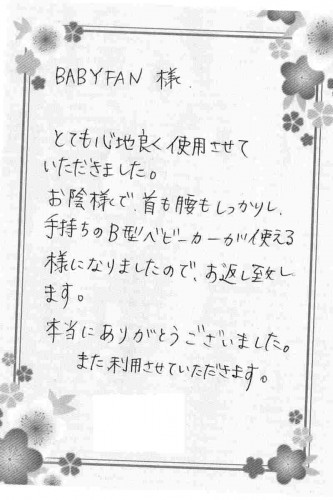 BABYFAN 様
とても心地良く使用させて
いただきました。
お陰様で、首も腰もしっかりし、
手持ちのB型ベビーカーが使える
様になりましたので、お返し致し
ます。
本当にありがとうございました。
また利用させていただきます。